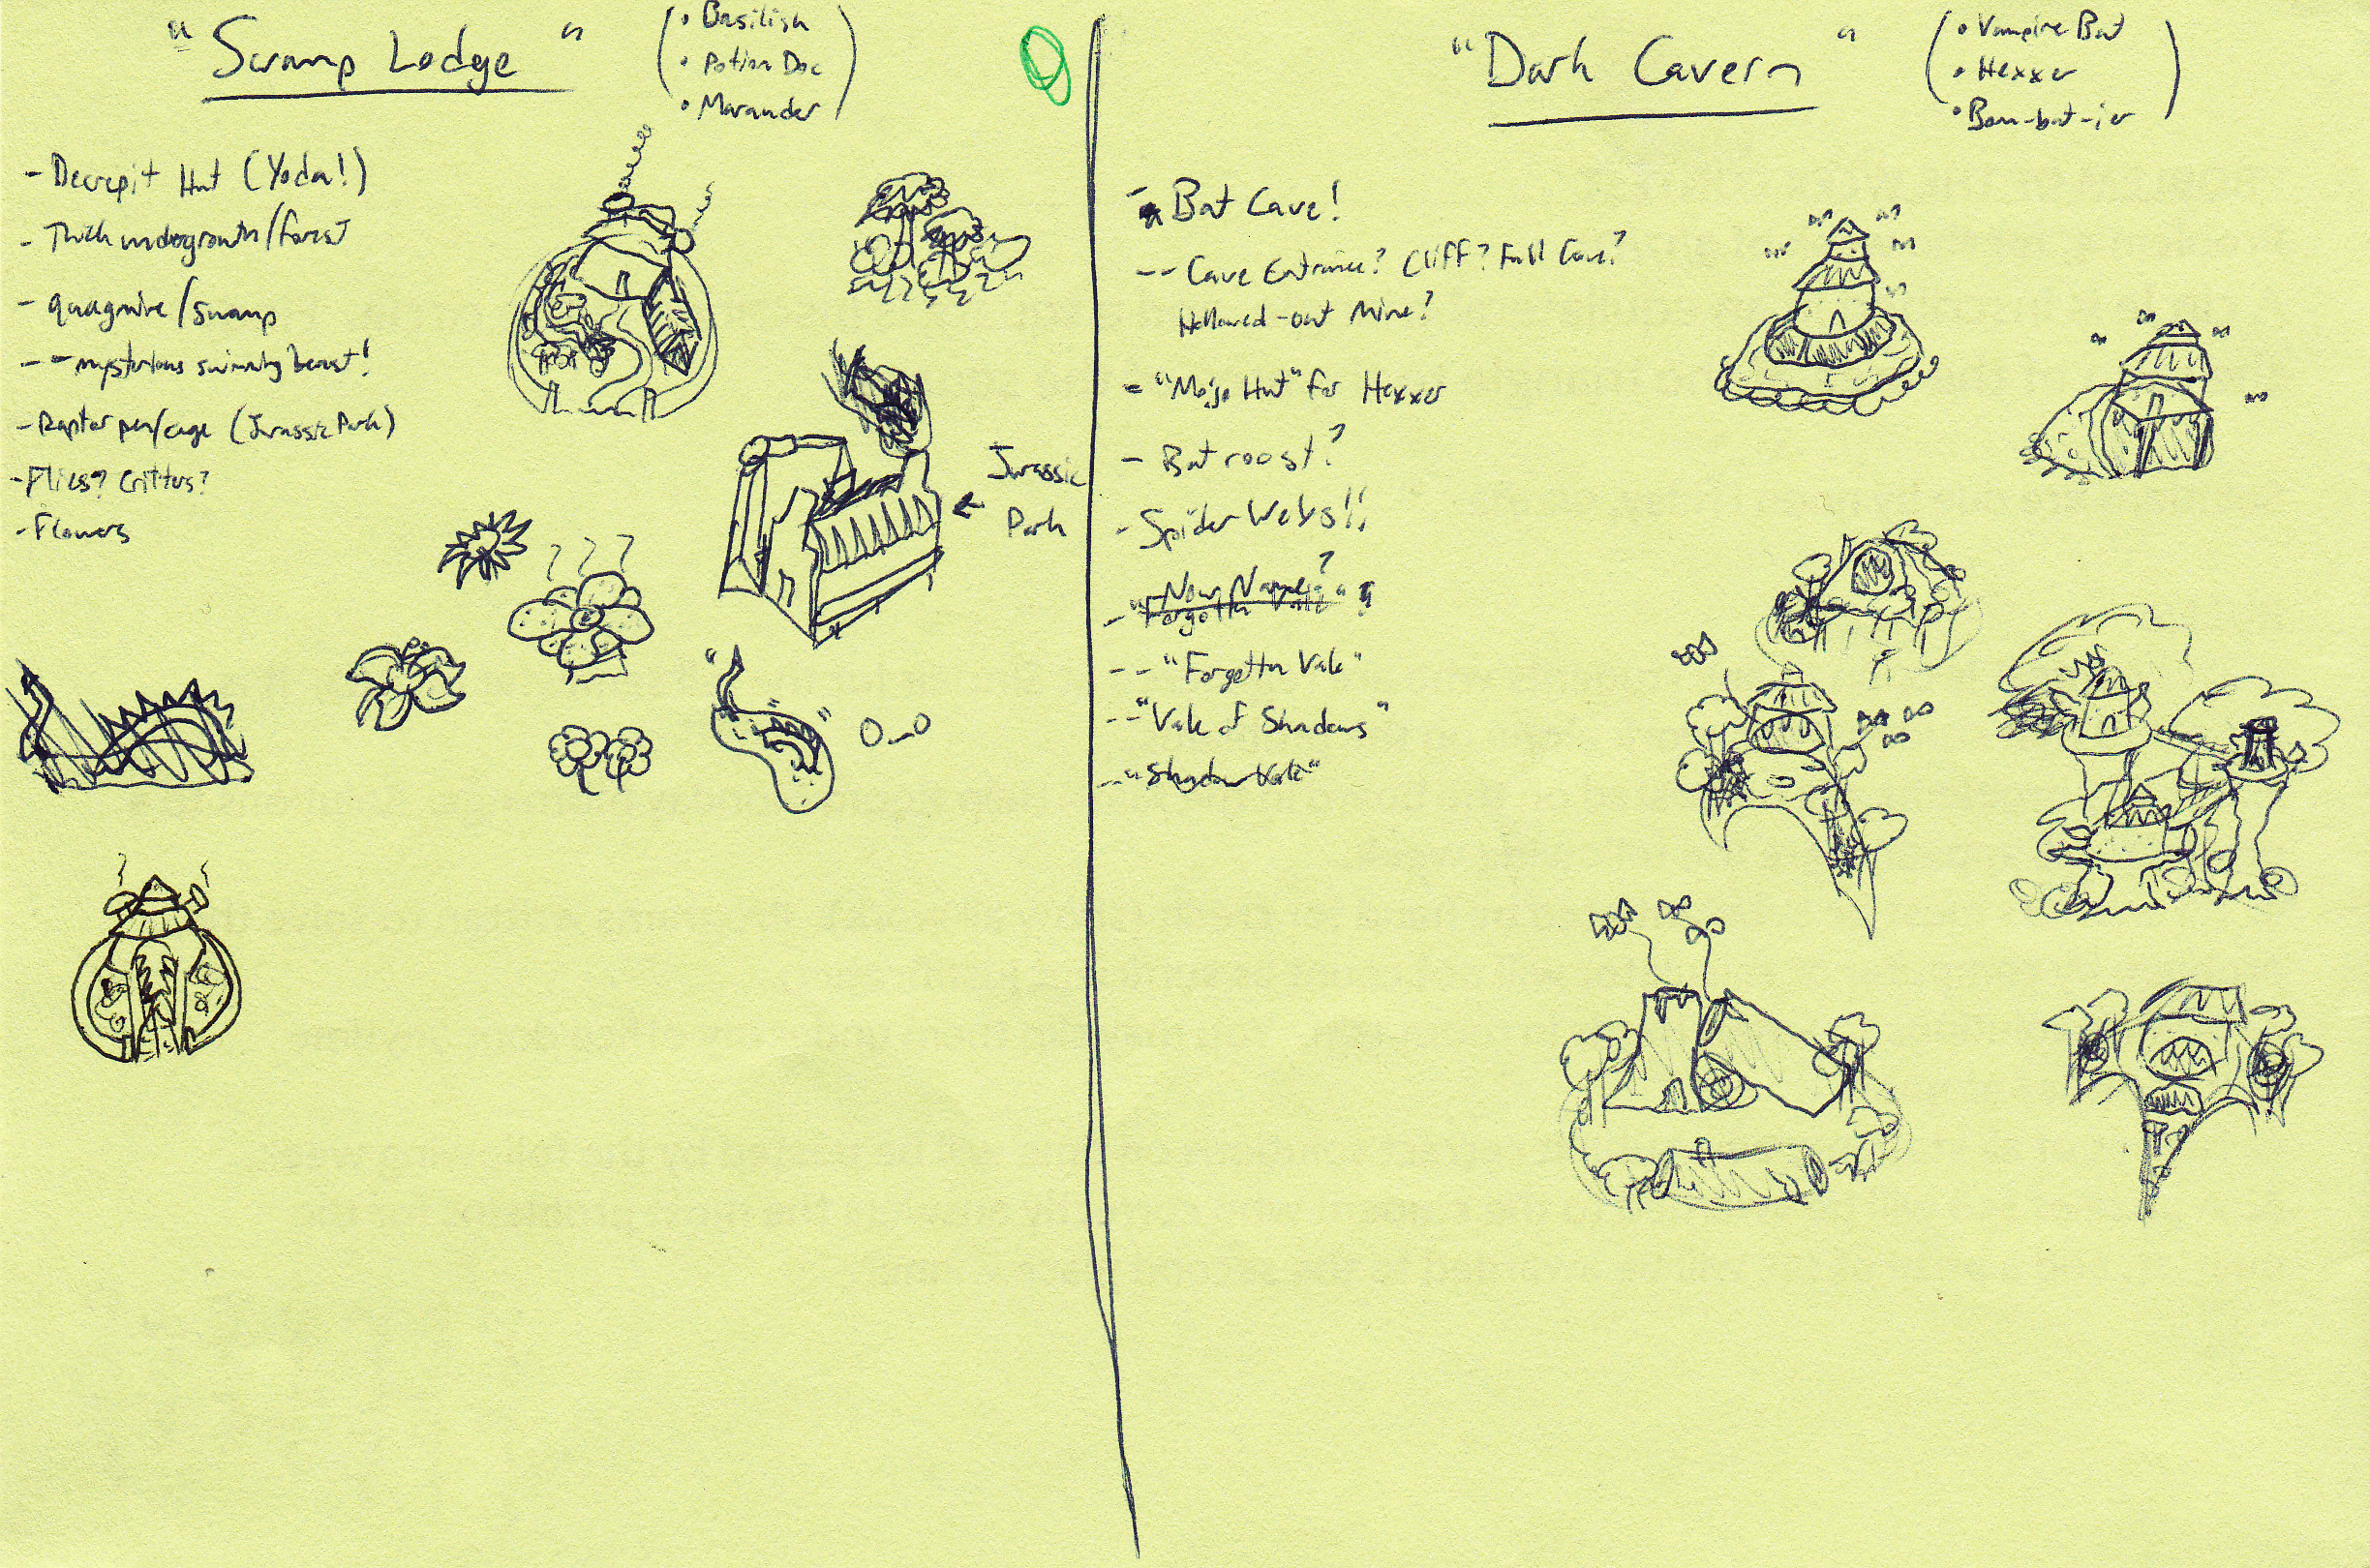 "Swamp Lodge"
(• Basilisk
• Potion Doc
• Marauder)
- Decrepit Hut (Yoda!)
- Thick undergrowth/forest
- quagmire/swamp
-- mysterious swimming beast!
- Raptor pen/cage (Jurassic Park)
- Flies? Critters?
- Flowers
← Jurassic
Park
O_O
"Dark Cavern"
(• Vampire Bat
• Hexxer
• Bom-bat-ier)
- Bat Cave!
-- Cave Entrance? Cliff? Full Cave?
Hollowed-out Mine?
- "Mojo Hut" for Hexxer
- Bat roost?
- Spider Webs!!
New Name?
- "Forgotten Vale"?
-- "Forgotten Vale"
-- "Vale of Shadows"
-- "Shadow Vale"